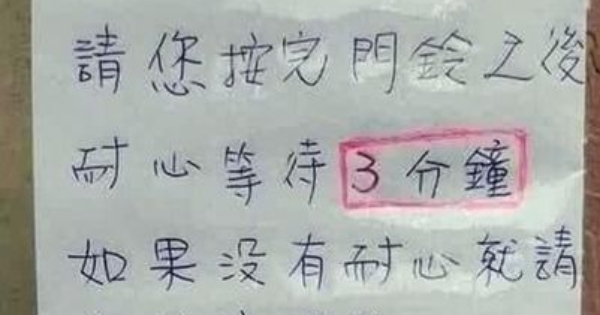 請您按完門鈴之後
耐心等待3分鐘
如果没有耐心就請